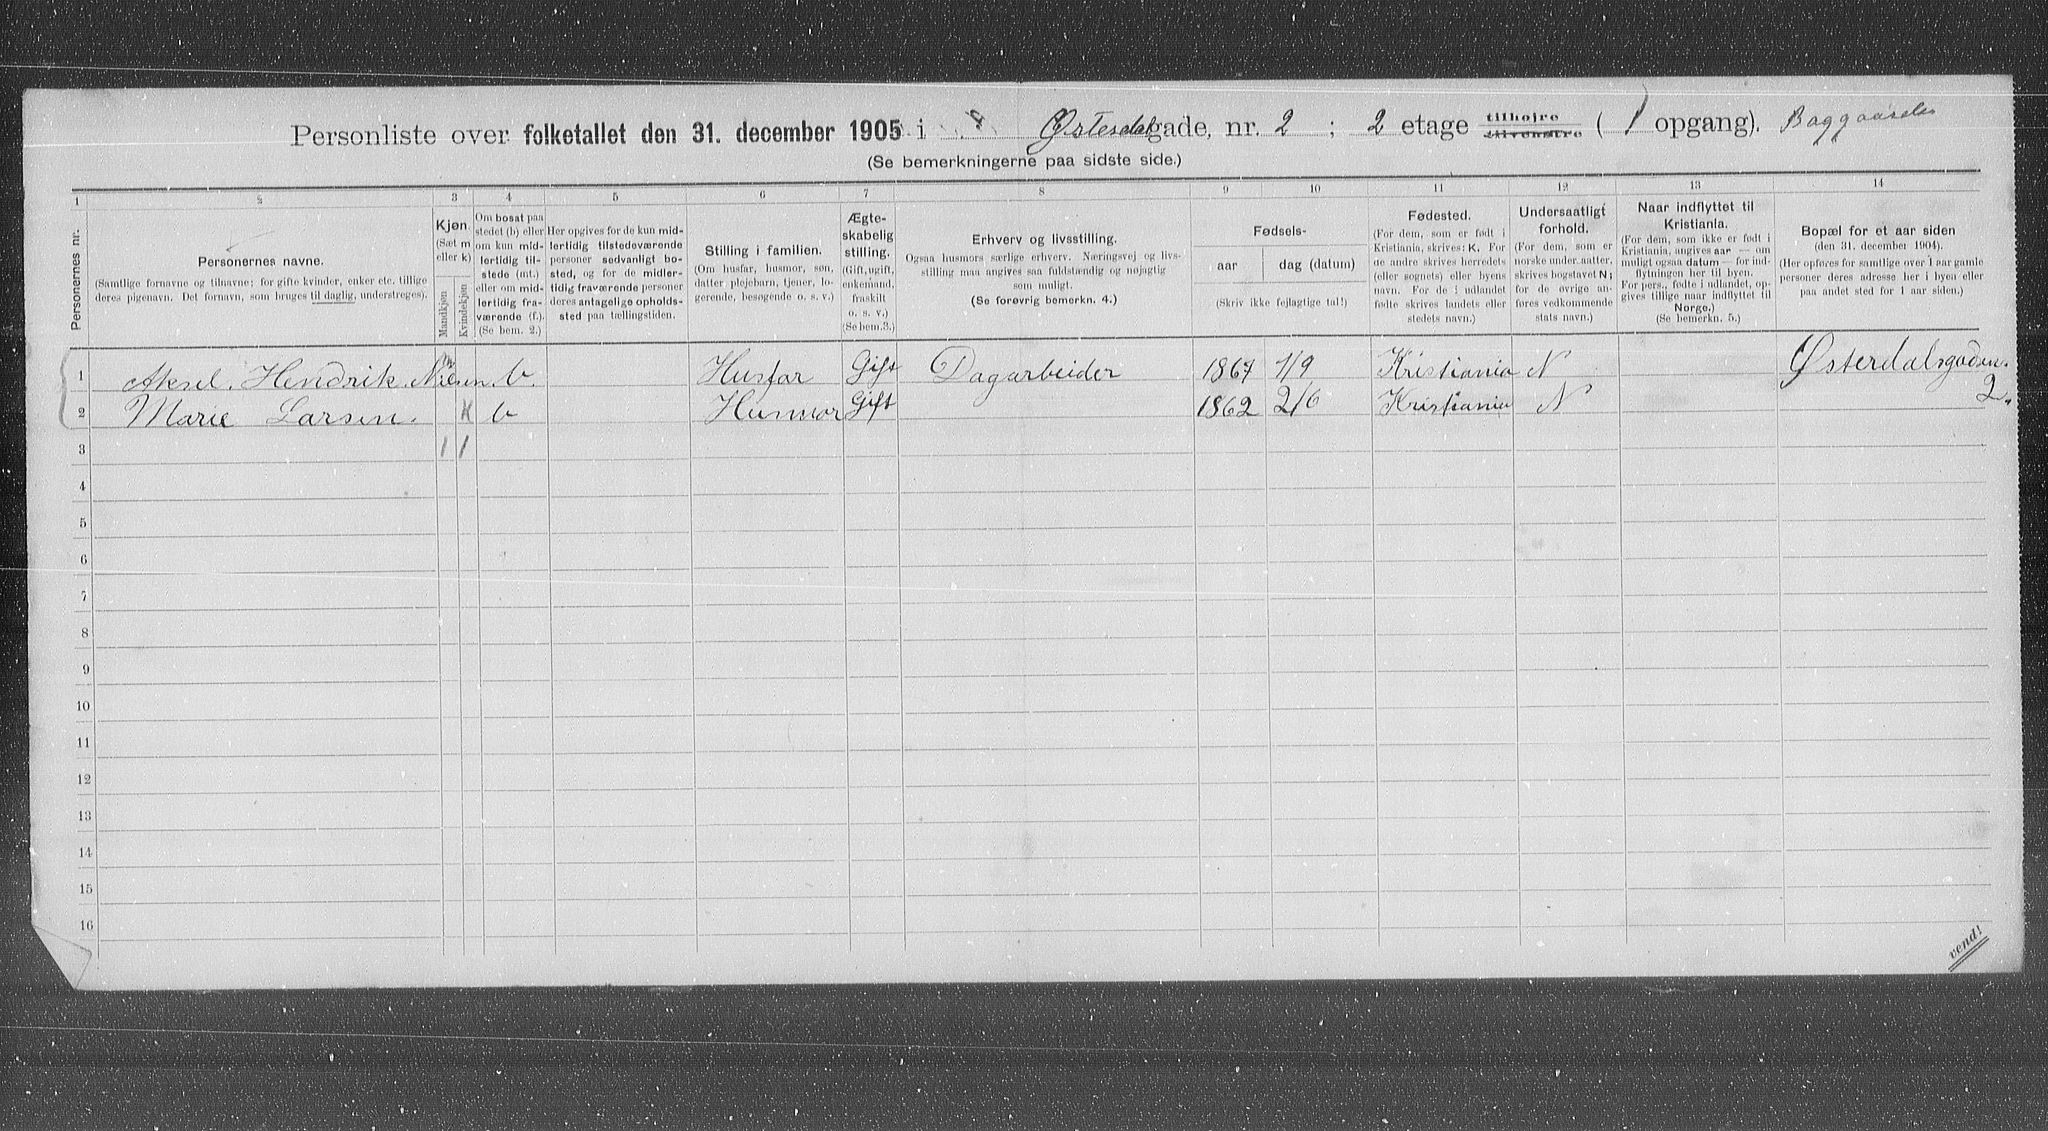 Personliste over folketallet den 31. december 1905 i Østerdalgade, nr. 2 ; 2 etage tilhøjre tilvenstre ( 1 opgang). Baggaarden
(Se bemerkningerne paa sidste side.)
1 2 3 4 5 6 7 8 9 10 11 12 13 14
Personernes nr.
Personernes navne.
(Samtlige fornavne og tilnavne; for gifte kvinder, enker etc. tillige
deres pigenavn. Det fornavn, som bruges til daglig, understreges).
Kjøn.
(Sæt m
eller k)
Mandkjøn
Kvindekjøn
Om bosat paa
stedet (b) eller
om kun mid-
lertidig til-
stede (mt.)
eller om mid-
lertidig fra-
værende (f.).
(Se bem. 2.)
Her opgives for de kun mid-
lertidig tilstedeværende
personer sedvanligt bo-
sted, og for de midler-
tidig fraværende personer
deres antagelige opholds-
sted paa tællingstiden.
Stilling i familien.
(Om husfar, husmor, søn,
datter, plejebarn, tjener, lo-
gerende, besøgende o. s. v.)
Ægte-
skabelig
stilling.
(Gift, ugift,
enkemand,
fraskilt
o. s. v.)
(Se bem.3.)
Erhverv og livsstilling.
Ogsaa husmors særlige erhverv. Næringsvej og livs-
stilling maa angives saa fuldstændig og nøjagtig
som muligt.
(Se forøvrig bemerkn. 4.)
Fødsels-
aar
dag (datum)
(Skriv ikke fejlagtige tal!)
Fødested.
(For dem, som er født i
Kristiania, skrives: K. For
de andre skrives herredets
(eller sognets) eller byens
navn. For de i udlandet
fødte skrives landets eller
stedets navn.)
Undersaatligt
forhold.
(For dem, som er
norske under atter,
skrives bogstavet N;
for de øvrige an-
føres vedkommende
stats navn.)
Naar indflyttet til
Kristiania.
(For dem, som ikke er født i
Kristiania, angives aar — om
muligt ogsaa datum — for ind-
flytningen her til byen.
For pers., fødte i udlandet, op-
gives tillige naar indflyttet til
Norge.)
(Se bemerkn. 5.)
Bopæl for et aar siden
(den 31. december 1904).
(Her opføres for samtlige over 1 aar gamle
personer deres adresse her i byen eller
paa andet sted for 1 aar siden.)
1 Aksel. Hendrik. Nielsen. m b. Husfar Gift Dagarbeider 1867 1/9 Kristiania N Østerdalsgaden.
2.
2 Marie Larsen. K b Husmor Gift 1862 2/6 Kristiania N
3 1 1
4
5
6
7
8
9
10
11
12
13
14
15
16
vend!